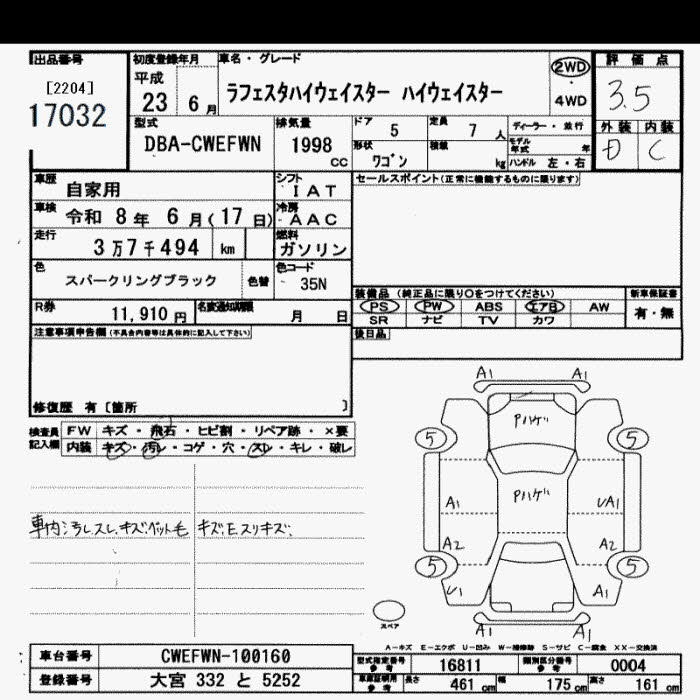 出品番号
[2204]
17032
初度登録年月
平成
23 6月
車名・グレード
ラフェスタハイウェイスター ハイウェイスター
2WD
4WD
評価点
3.5
外装 内装
D C
型式
DBA-CWEFWN
排気量
1998
CC
ドア
5
定員
7人
ディーラー・並行
形状
ワゴン
積載
kg
モデル年式 年
ハンドル 左・右
車歴
自家用
シフト
IAT
セールスポイント(正常に機能するものに限ります)
車検
令和 8年 6月(17日)
冷房
AAC
走行
3万7千494 km
燃料
ガソリン
色
スパークリングブラック
色替
色コード
35N
装備品 (純正品に限り○をつけてください)
新車保証書
PS PW ABS エアB AW
有・無
SR ナビ TV カワ
R券
11,910円
名変通知期限
月 日
後日品
注意事項申告欄(不具合内容等は具体的に記入して下さい)
修復歴 有 [箇所 ]
検査員記入欄
FW キズ・飛石・ヒビ割・リペア跡・×要
内装 キズ・汚レ・コゲ・穴・スレ・キレ・破レ
車内汚レスレ、キズ、ペット毛 キズ、E、スリキズ、
A1 A1
Pハゲ
5 5
Pハゲ
A1 UA1
A2 A2
5 5
U1 A1
A1 A1
スペア
A-キズ E-エクボ U-凹み W-補修跡 S-サビ C-腐食 XX-交換済
車台番号 CWEFWN-100160
登録番号 大宮 332 と 5252
型式指定番号 参考 16811
類別区分番号 参考 0004
車庫証明用 参考 長さ 461cm 幅 175cm 高さ 161cm